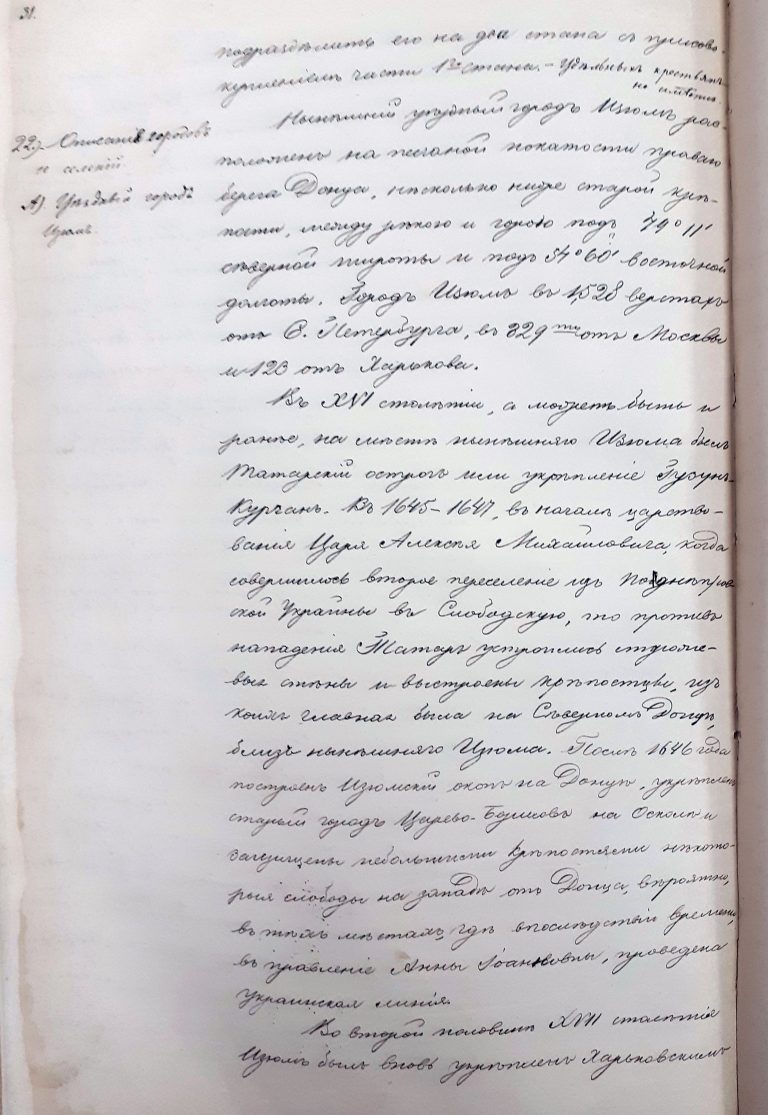 31.
подраздѣлить его на два стана съ присово-
купленіемъ части 1го стана. – Удѣльныхъ крестьянъ
не имѣется.
22). Описаніе городовъ
и селеній.
А). Уѣздный городъ
Изюмъ.
Нынѣшній уѣздный городъ Изюмъ рас-
положенъ на песчаной покатости праваго
берега Донца, нѣсколько ниже старой крѣ-
пости, между рѣкою и горою подъ 49° 11'
сѣверной широты и подъ 54° 60' восточной
долготы. Городъ Изюмъ въ 1,528 верстахъ
отъ С. Петербурга, въ 829ти отъ Москвы
и 123 отъ Харькова.
Въ XVI столѣтіи, а можетъ быть и
ранѣе, на мѣстѣ нынѣшняго Изюма былъ
Татарскій острогъ или укрѣпленіе Гузунъ-
Курганъ. Въ 1645–1647, въ началѣ царство-
ванія Царя Алексѣя Михайловича, когда
совершилось второе переселеніе изъ Поднѣпров
ской Украйны въ Слободскую, то противъ
нападенія Татаръ устроились стороже-
выя стѣны и выстроены крѣпостцы, изъ
коихъ главная была на Сѣверномъ Донцѣ,
близъ нынѣшняго Изюма. Послѣ 1646 года
построенъ Изюмскій окопъ на Донцѣ, укрѣпленъ
старый городъ Царево-Борисовъ на Осколѣ и
защищены небольшими крѣпостями нѣкото-
рыя слободы на западъ отъ Донца, вѣроятно,
въ тѣхъ мѣстахъ, гдѣ впослѣдствіи времени,
въ правленіе Анны Іоанновны, проведена
украинская линія.
Во второй половинѣ XVII столѣтія
Изюмъ былъ вновь укрѣпленъ Харьковскимъ